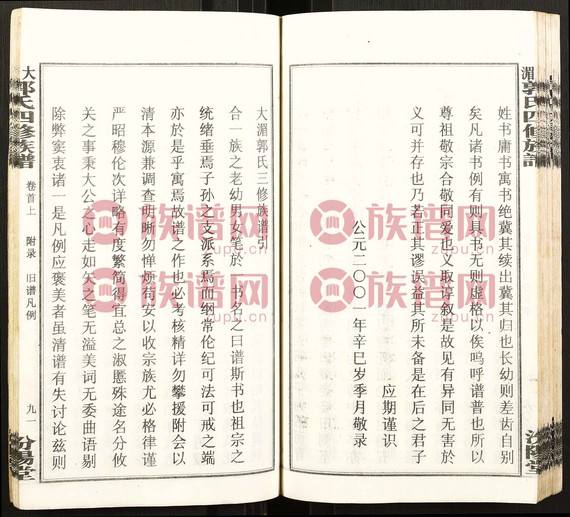 姓书庸书寓书绝冀其续出冀其归也长幼则差齿自别
矣凡诸书例有则具书无则虚格以俟呜呼谱普也所以
尊祖敬宗合敬同爱也义取谆叙是故见有异同无害於
义可并存也乃若正其谬误益其所未备是在后之君子
应期谨识
公元二〇〇一年辛巳岁季月敬录
大湄郭氏三修族谱引
合一族之老幼男女笔於一书名之曰谱斯书也祖宗之
统绪垂焉子孙之支派系焉而纲常伦纪可法可戒之端
亦於是乎寓焉故谱之作也必考核精详勿攀援附会以
清本源兼调查明晰勿惮烦苟安以收宗族尤必格律谨
严昭穆伦次详略有度繁简得宜总之淑慝殊途名分攸
关之事秉大公之心走如矢之笔无溢美词无委曲语剔
除弊窦衷诸一是凡例应褒美者虽清谱有失讨论兹则
大
郭氏四修族谱
卷首上
附录
旧谱凡例
九一
汾陽堂
湄
郭氏四修族譜
汾陽堂
族谱网
zupu.cn
族谱网
zupu.cn
族谱网
zupu.cn
族谱网
zupu.cn